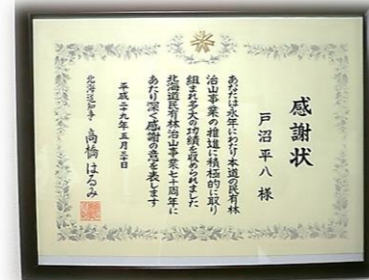 感謝状
戸沼平八 様
あなたは永年にわたり本道の民有林
治山事業の推進に積極的に取り
組まれ多大の功績を収められました
北海道民有林治山事業七十周年に
あたり深く感謝の意を表します
平成二十九年五月三十日
北海道知事 高橋はるみ